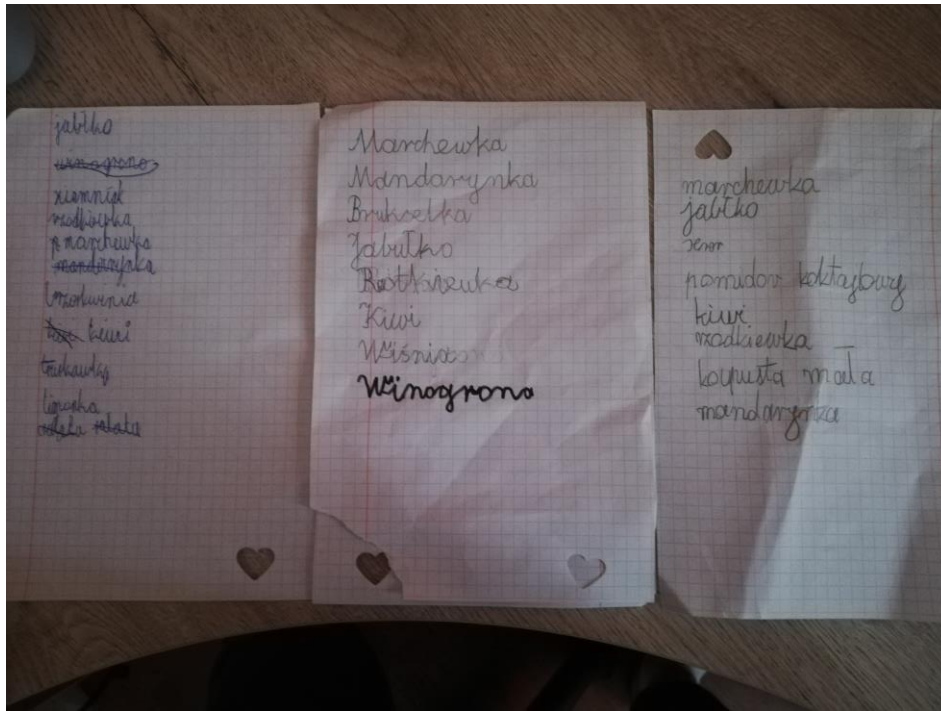 jabłko
winogrono
ziemniak
rzodkiewka
marchewka
mandarynka
brzoskwinia
kiwi
truskawka
Marchewka
Mandarynka
Brukselka
Jabułko
Rotkiewka
Kiwi
Wiśnia
Winogrona
marchewka
jabłko
pomidor koktajlowy
kiwi
rzodkiewka
kapusta mała